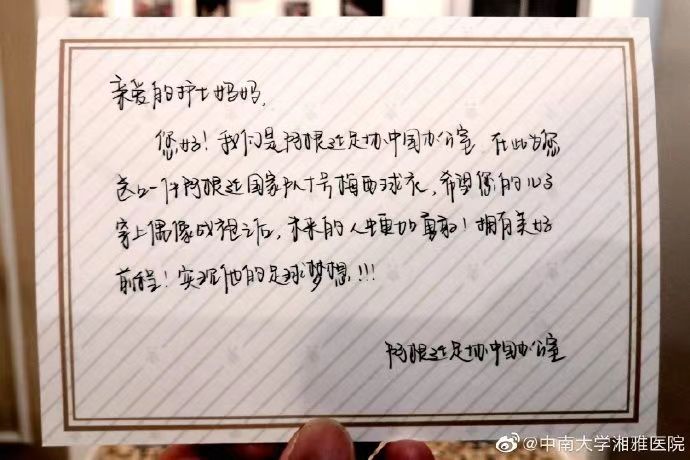 亲爱的护士妈妈,
您好!我们是阿根廷足协中国办公室 在此为您
送上一件阿根廷国家队十号梅西球衣,希望您的儿子
穿上偶像战袍之后,未来的人生更加勇敢!拥有美好
前程!实现他的足球梦想!!!
阿根廷足协中国办公室
@中南大学湘雅医院